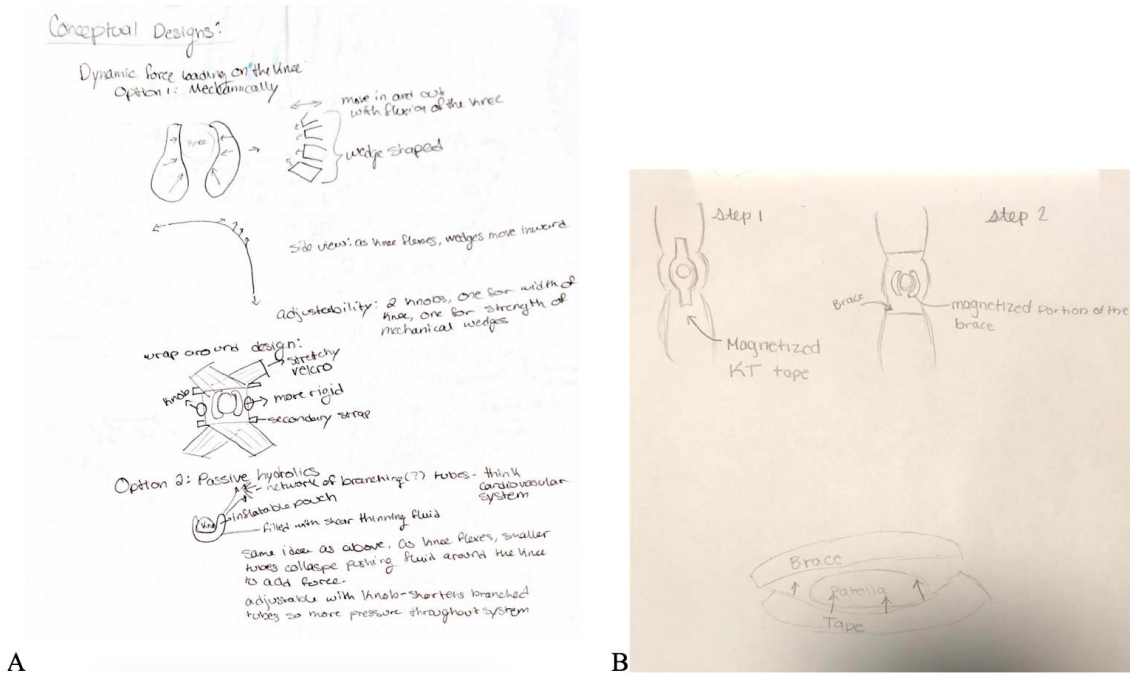 Conceptual Designs:
Dynamic force loading on the knee
Option 1: Mechanically
move in and out
with flexion of the knee
knee
wedge shaped
side view: as knee flexes, wedges move inward
adjustability: 2 knobs, one for width of
knee, one for strength of
mechanical wedges
wrap around design:
stretchy
velcro
knob
more rigid
secondary strap
Option 2: Passive hydrolics
network of branching(?) tubes - think
cardiovascular
system
inflatable pouch
filled with shear thinning fluid
same idea as above, as knee flexes, smaller
tubes collaspe pushing fluid around the knee
to add force.
adjustable with knob-shortens branched
tubes so more pressure throughout system
A
Step 1
Step 2
Brace
magnetized portion of the
brace
Magnetized
KT tape
Brace
Patella
Tape
B